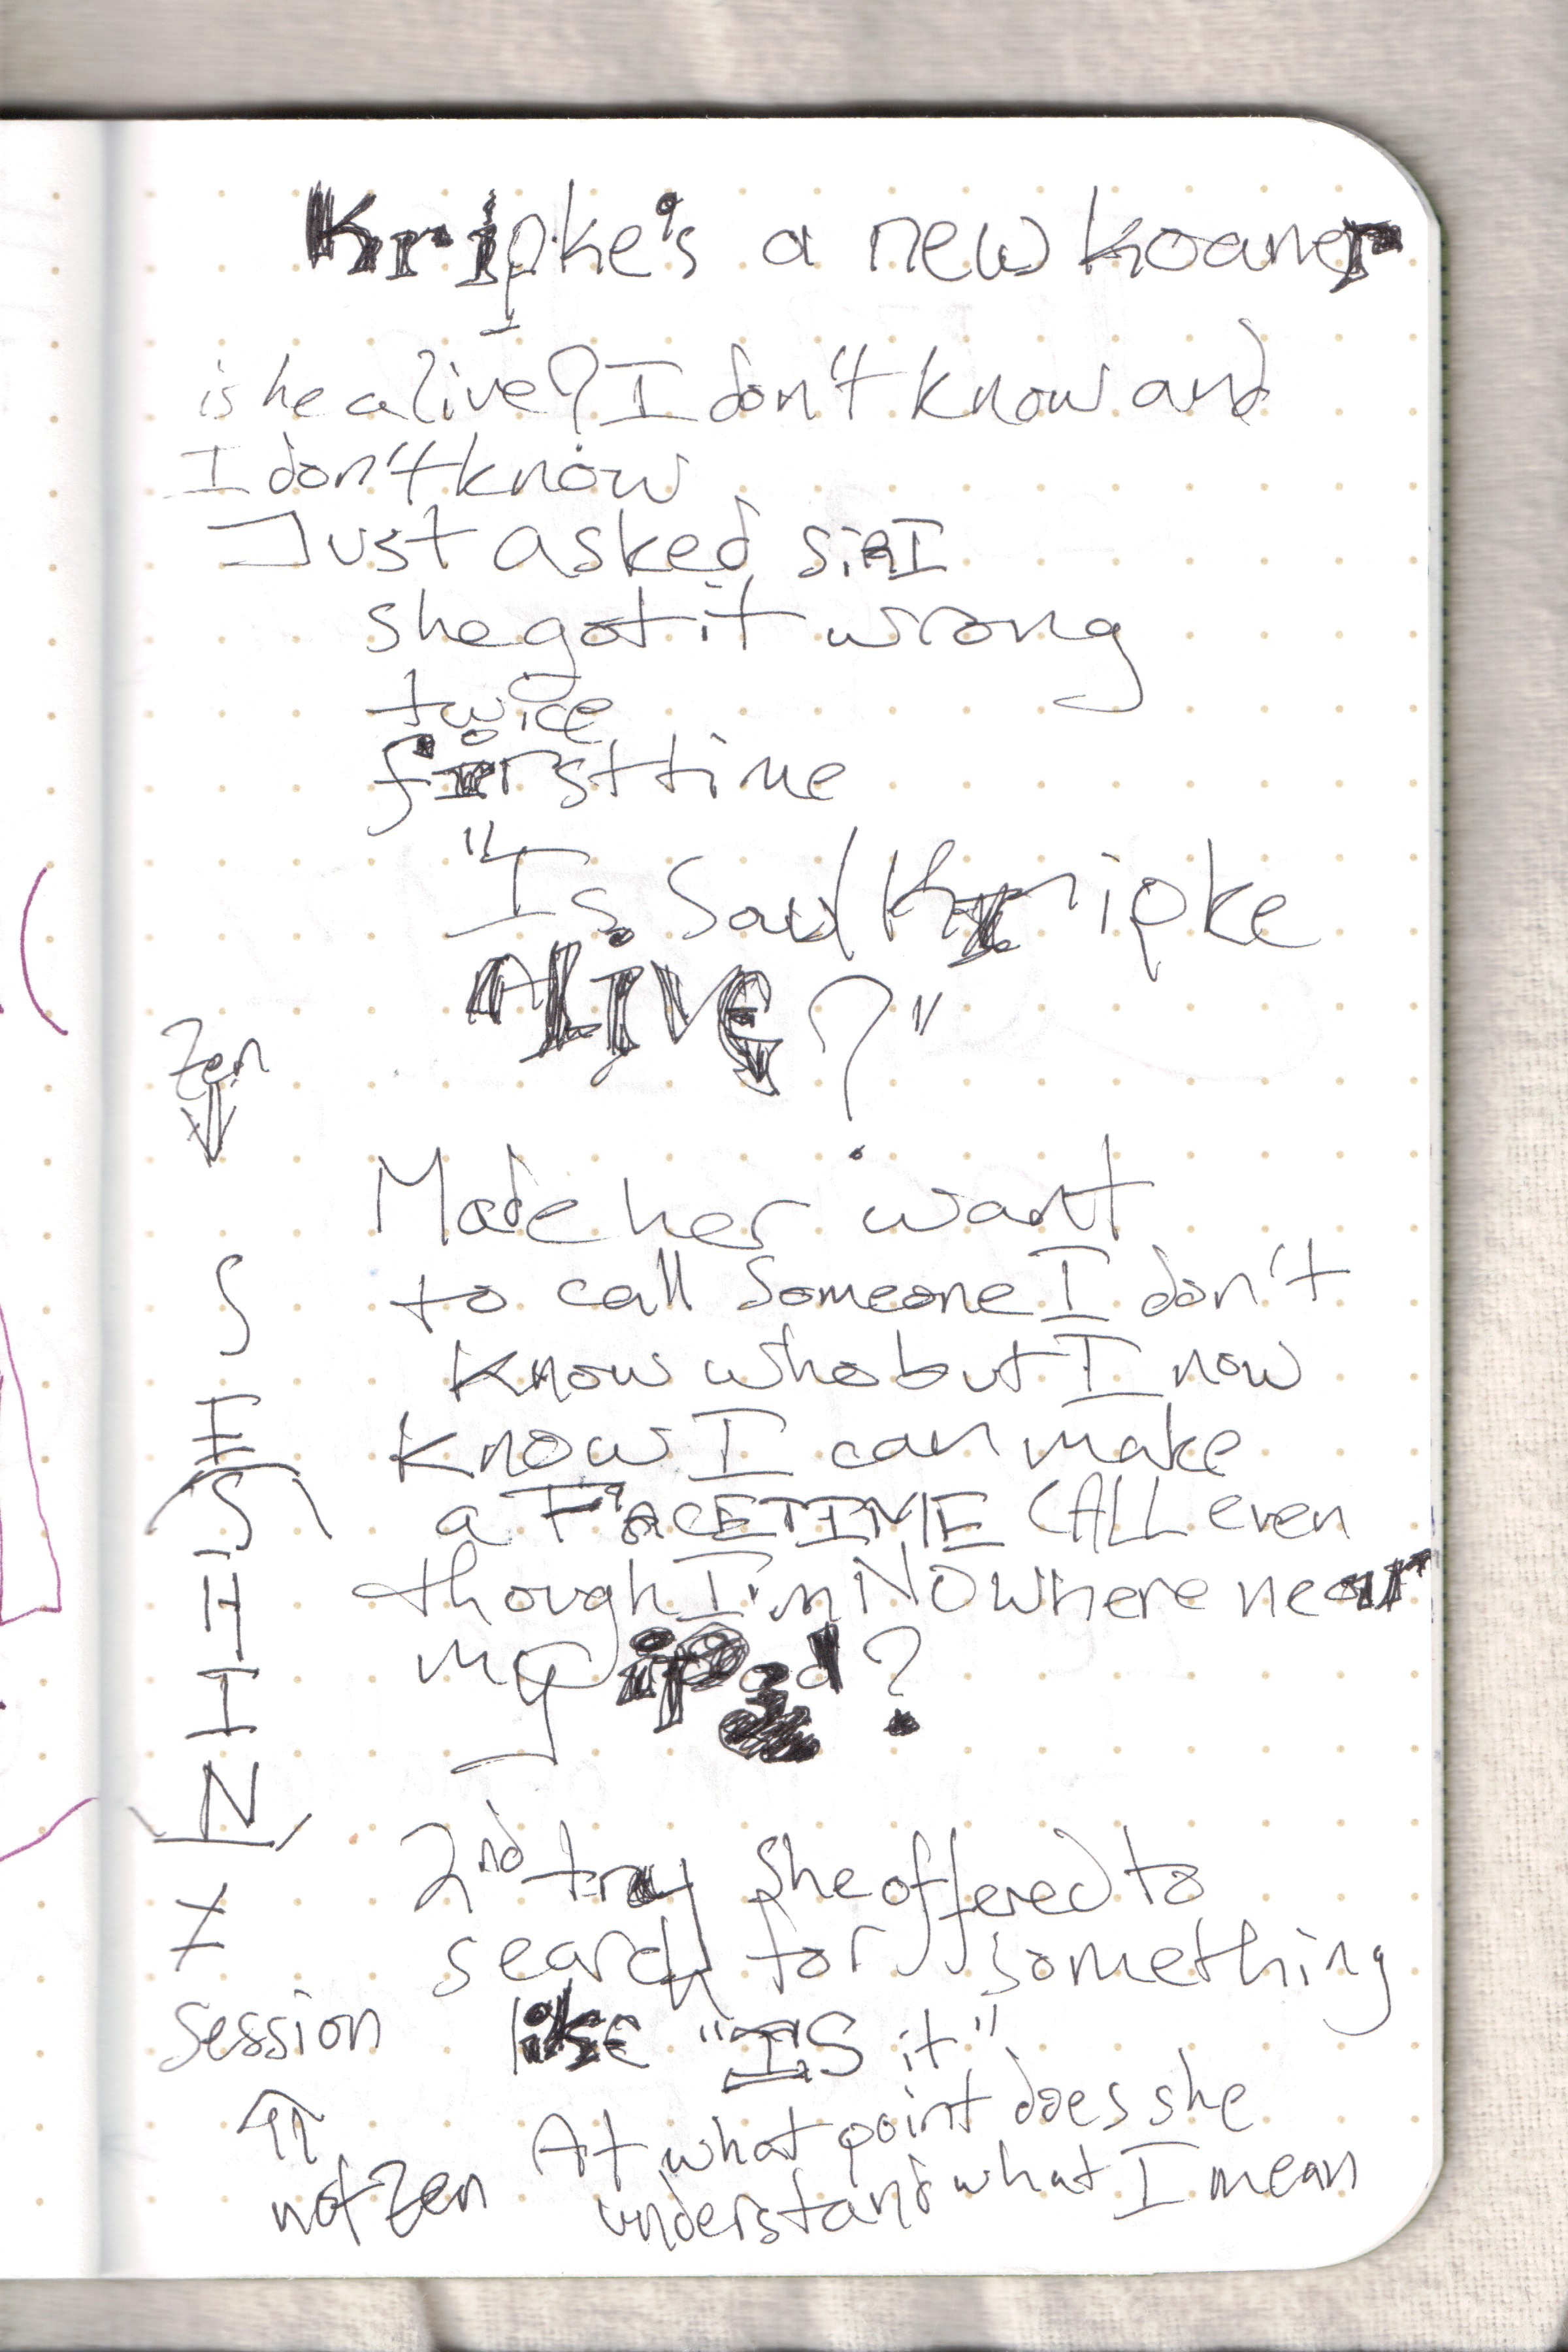 Kripke's a new koaner
is he alive? I don't know and
I don't know
Just asked SiRI
she got it wrong
twice
first time
"Is Saul Kripke
ALiVE?"
Made her want
to call someone I don't
know who but I now
know I can make
a FACETIME CALL even
though I'm NOwhere near
my ipad?
2nd try she offered to
search for something
like "IS it"
At what point does she
understand what I mean
Zen
S
E
S
H
I
N
≠
session
not Zen